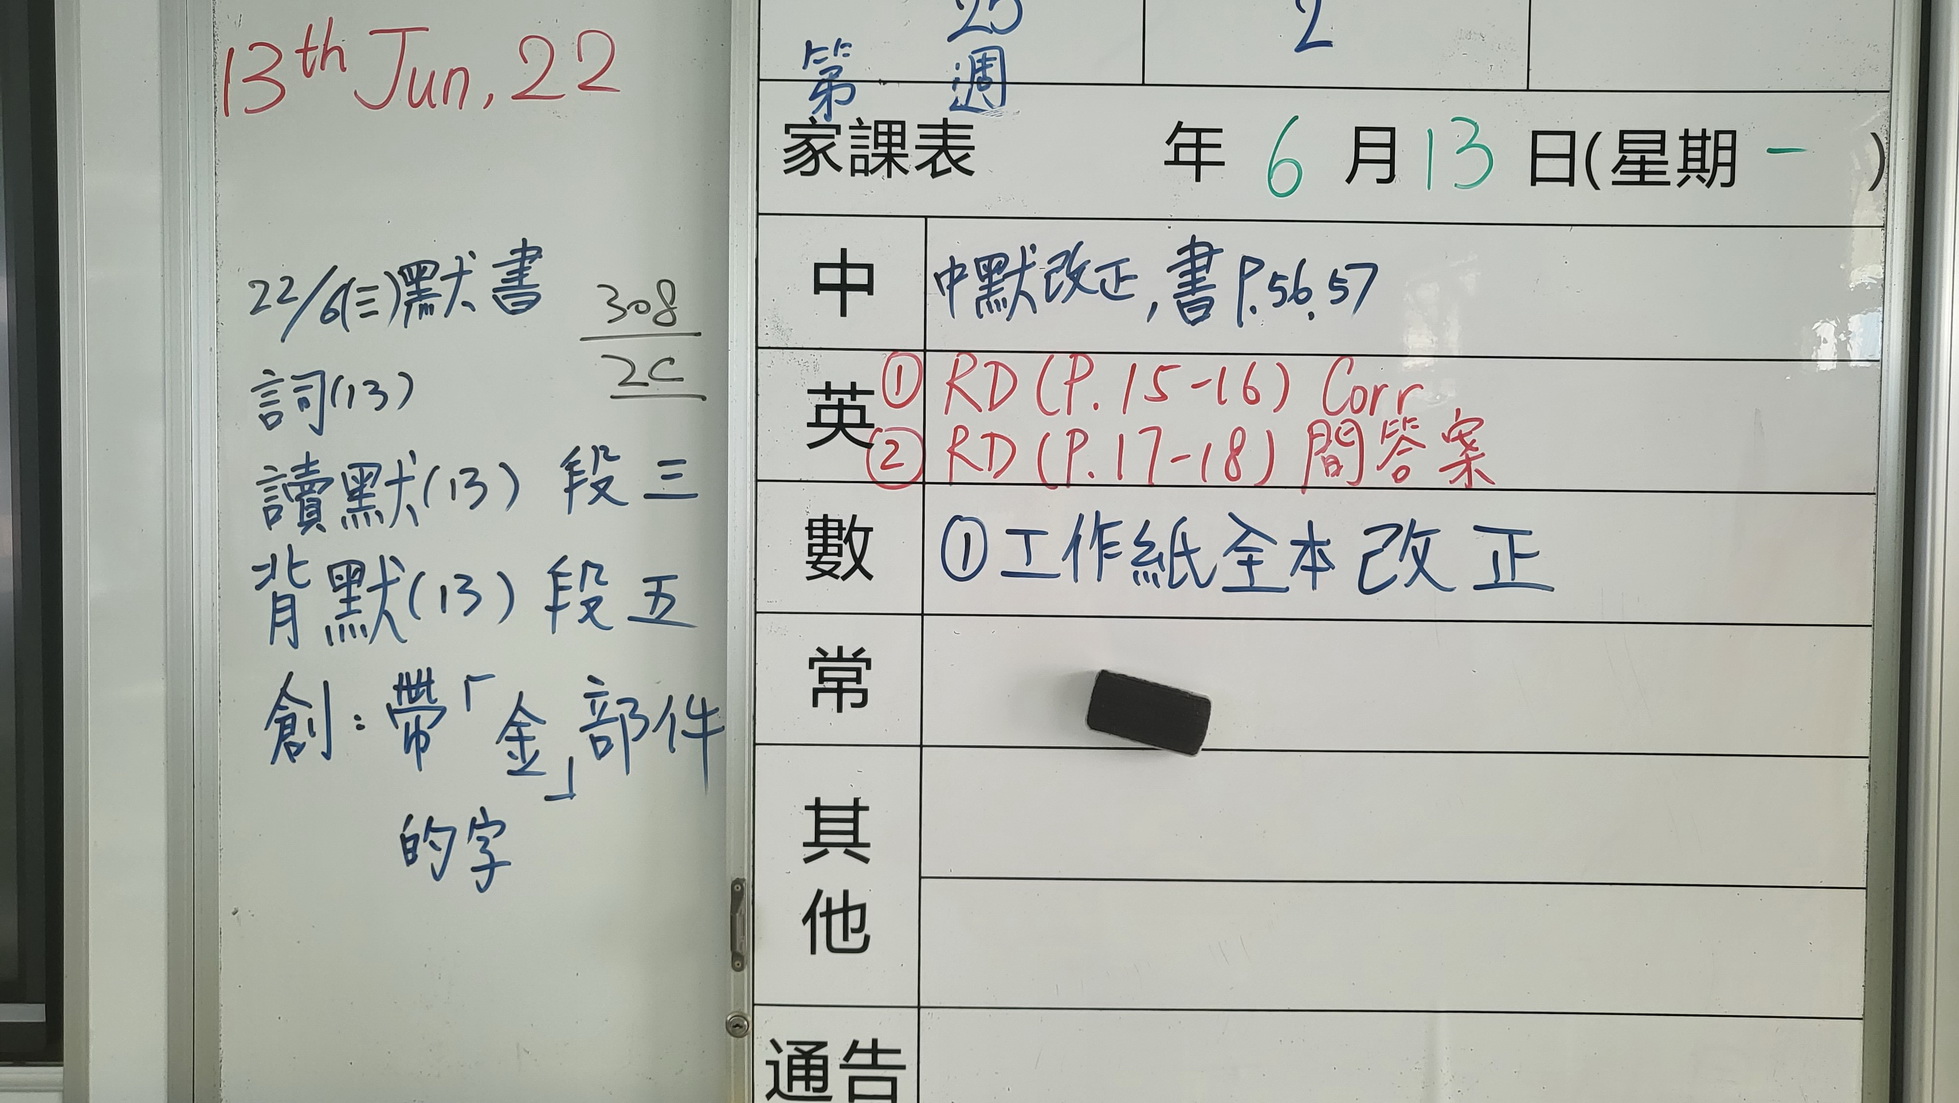 13th Jun, 22
22/6(三)默書
308
2C
詞(13)
讀默(13) 段三
背默(13) 段五
創：帶「金」部件
的字
25
2
第 週
家課表 年 6 月 13 日(星期一 )
中 中默改正,書P.56,57
英 ① RD (P.15-16) Corr
② RD (P.17-18) 問答案
數 ①工作紙全本改正
常
其他
通告